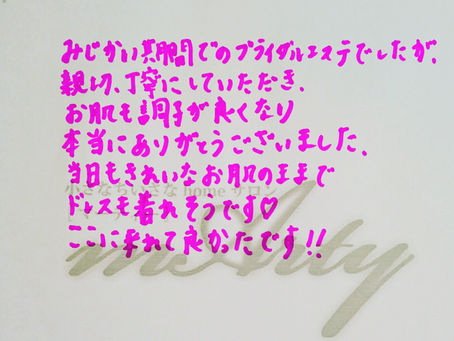 みじかい期間でのブライダルエステでしたが、
親切、丁寧にしていただき、
お肌も調子が良くなり
本当にありがとうございました。
当日もきれいなお肌のままで
小さなちいさな home サロン
ドレスも着れそうです♡
ここに来れて良かたです!!
meArty